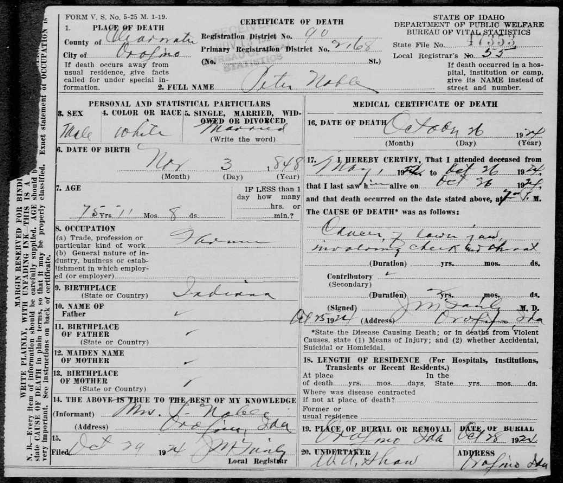 FORM V. S. No. 5-25 M. 1-19.
CERTIFICATE OF DEATH
STATE OF IDAHO
DEPARTMENT OF PUBLIC WELFARE
BUREAU OF VITAL STATISTICS
1. PLACE OF DEATH
County of Clearwater
City of Orofino
Registration District No. 90
Primary Registration District No. 2168
(No. St.)
State File No.
Local Registrar's No. 55
If death occurs away from usual residence, give facts called for under special information.
If death occurred in a hospital, institution or camp, give its NAME instead of street and number.
2. FULL NAME Peter Noble
PERSONAL AND STATISTICAL PARTICULARS
3. SEX
Male
4. COLOR OR RACE
White
5. SINGLE, MARRIED, WIDOWED OR DIVORCED
Married
(Write the word)
6. DATE OF BIRTH
Nov 3, 1848
(Month) (Day) (Year)
7. AGE
75 Yrs. 11 Mos. 8 ds.
IF LESS than 1 day how many hrs. or min.?
8. OCCUPATION
(a) Trade, profession or particular kind of work
Farmer
(b) General nature of industry, business or establishment in which employed (or employer)
9. BIRTHPLACE
(State or Country)
Indiana
10. NAME OF
Father
11. BIRTHPLACE
OF FATHER
(State or Country)
12. MAIDEN NAME
OF MOTHER
13. BIRTHPLACE
OF MOTHER
(State or Country)
14. THE ABOVE IS TRUE TO THE BEST OF MY KNOWLEDGE
(Informant) Mrs. Noble
(Address) Orofino, Ida
15.
Filed Oct 29 1924
Local Registrar
MEDICAL CERTIFICATE OF DEATH
16. DATE OF DEATH
October 26 1924
(Month) (Day) (Year)
17. I HEREBY CERTIFY, That I attended deceased from
May, 1924 to Oct 26 1924
that I last saw him alive on Oct 26 1924
and that death occurred on the date stated above, at M.
The CAUSE OF DEATH* was as follows:
Cancer of lower jaw,
involving cheek and throat
(Duration) yrs. mos. ds.
Contributory
(Secondary)
(Duration) yrs. mos. ds.
(Signed) M. D.
1924 (Address) Orofino Ida
*State the Disease Causing Death; or in deaths from Violent Causes, state (1) Means of Injury; and (2) whether Accidental, Suicidal or Homicidal.
18. LENGTH OF RESIDENCE (For Hospitals, Institutions, Transients or Recent Residents.)
At place In the
of death yrs. mos. days, State yrs. mos. ds.
Where was disease contracted
if not at place of death?
Former or
usual residence
19. PLACE OF BURIAL OR REMOVAL
Orofino Ida
DATE OF BURIAL
Oct 28 1924
20. UNDERTAKER
Shaw
ADDRESS
Orofino Ida
MARGIN RESERVED FOR BINDING
WRITE PLAINLY, WITH UNFADING INK
N. B.—Every item of information should be carefully supplied. AGE should be
state CAUSE OF DEATH in plain terms, so that it may be properly classified. Exact statement of OCCUPATION is
very important. See instructions on back of certificate.